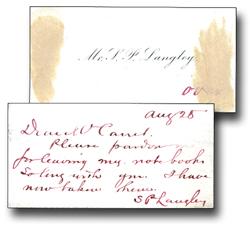 Mr. S. P. Langley.
Aug 28
Please pardon
for leaving my note books
so long with you. I have
now taken here.
S P Langley